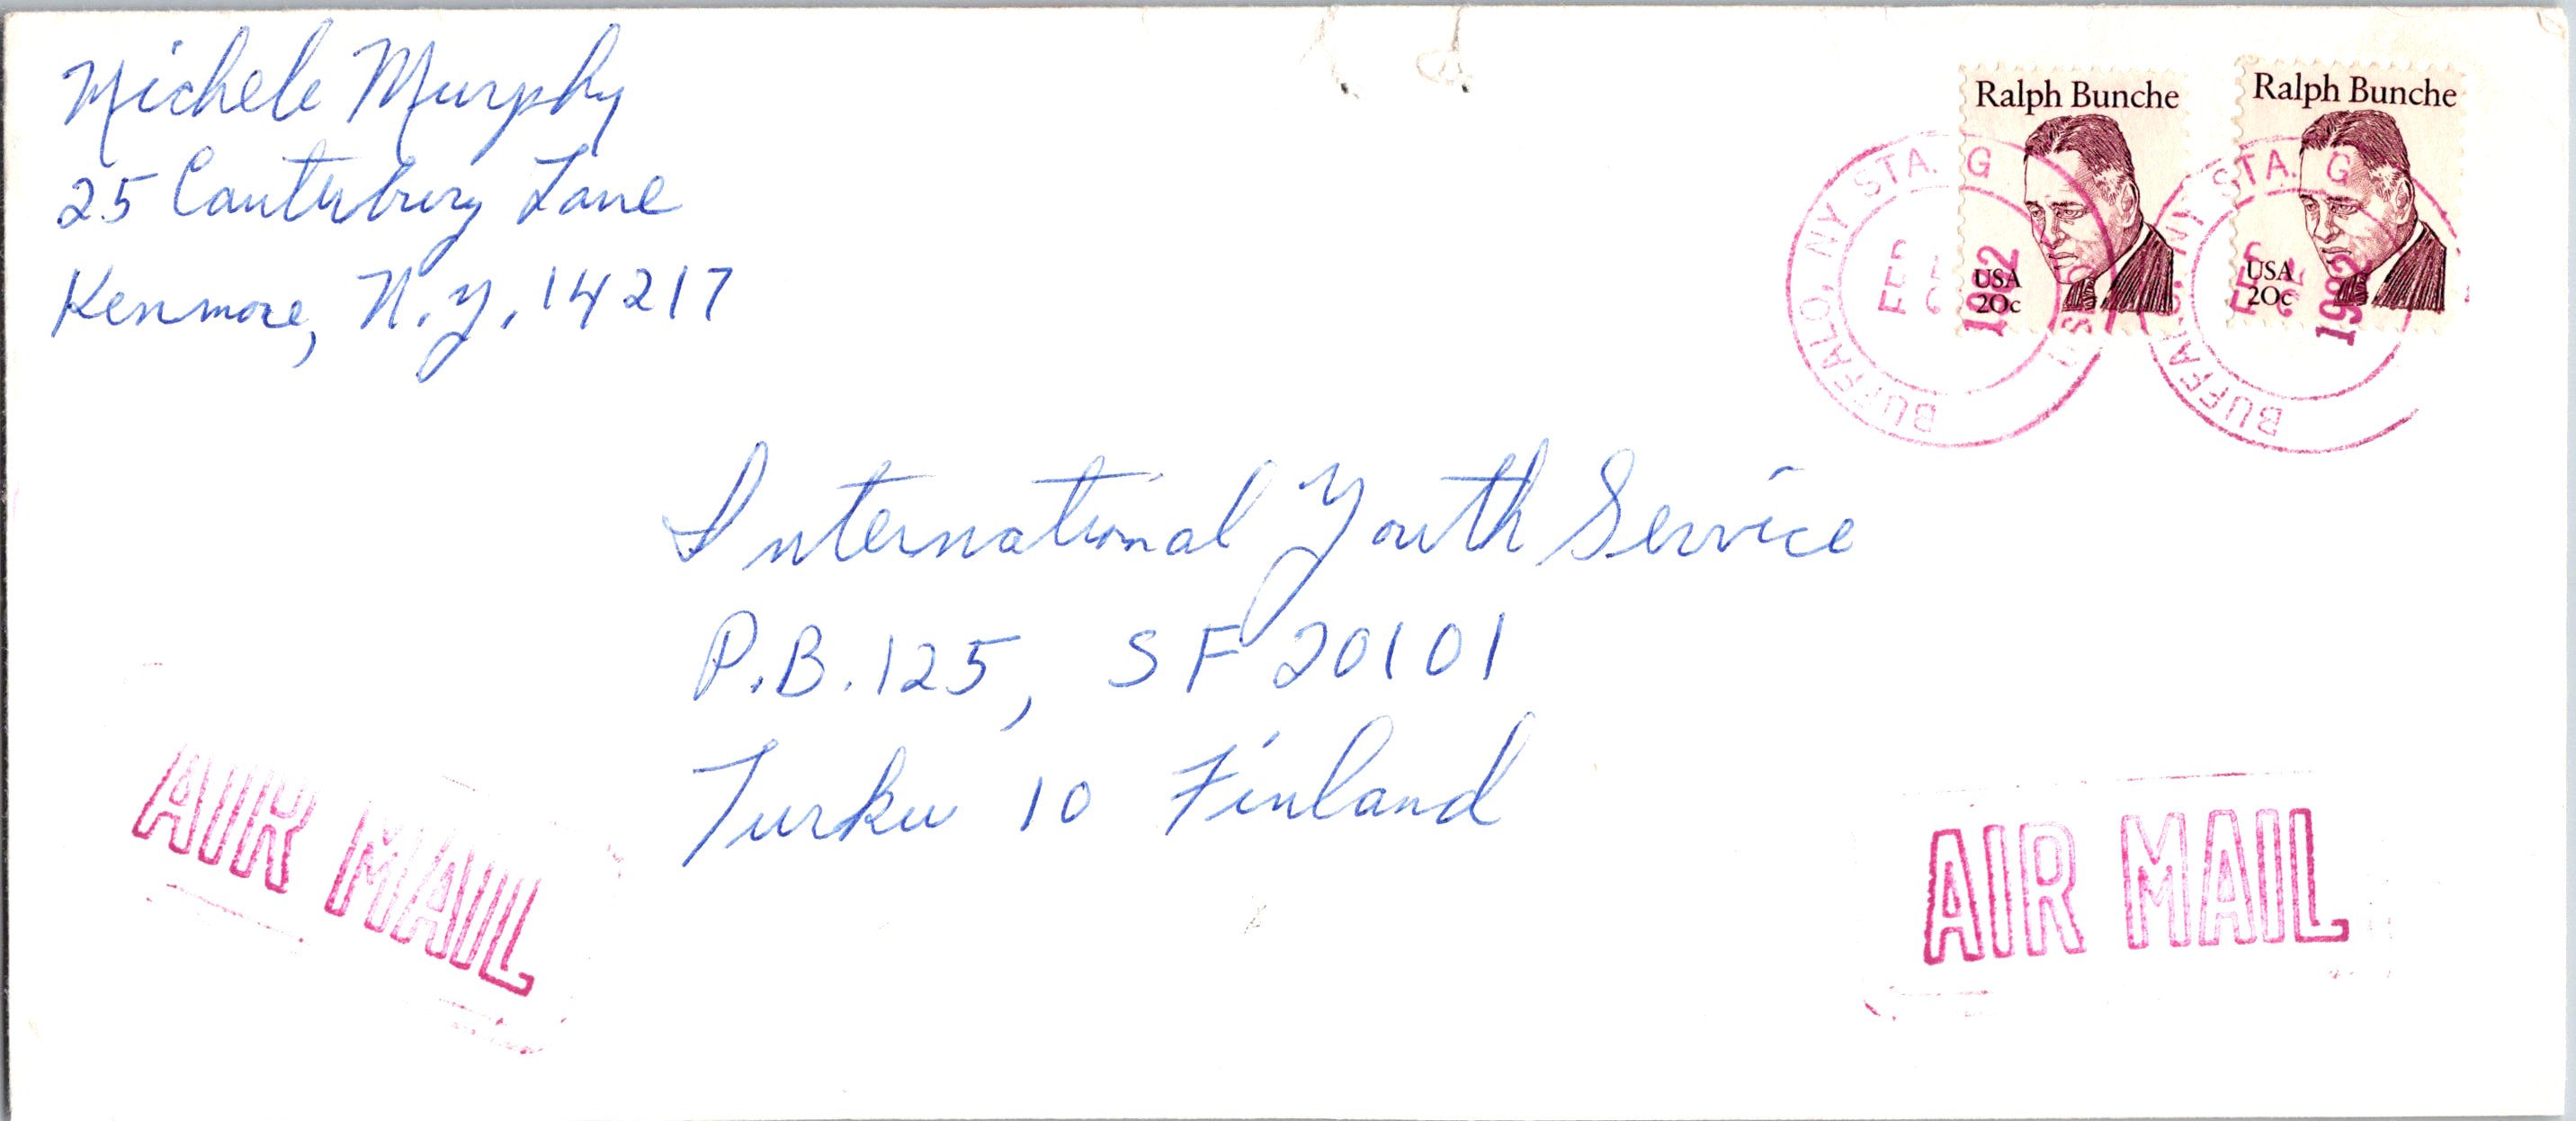 Michele Murphy
25 Canterbury Lane
Kenmore, N.Y. 14217
Ralph Bunche
USA
20c
Ralph Bunche
USA
20c
BUFFALO, NY STA. G
1982
BUFFALO, NY STA. G
1982
International Youth Service
P.B. 125, SF 20101
Turku 10 Finland
AIR MAIL
AIR MAIL